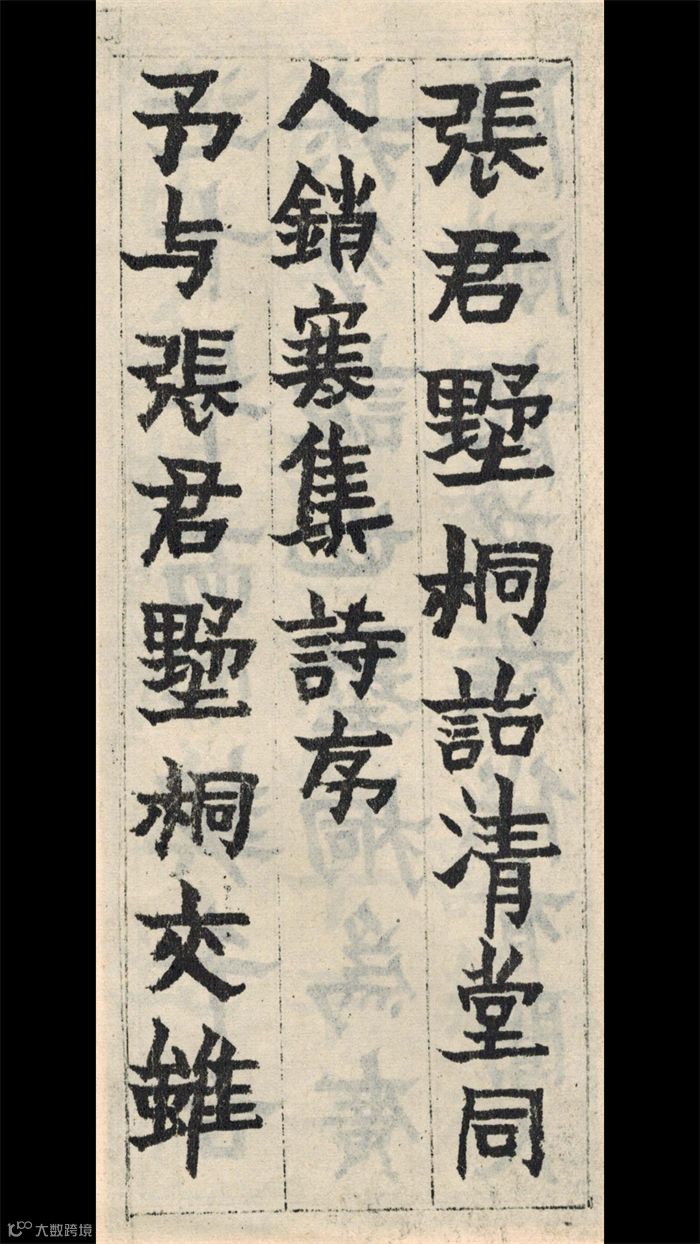 張君墅桐詒清堂同
人銷寒集詩序
予与張君墅桐交雖
大数跨境